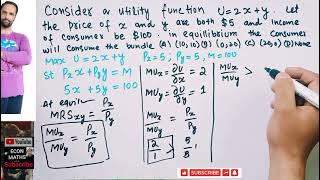 Consider a utility function U=2x+y. Let
the price of x and y are both $5 and income
of consumer be $100. in equilibrium the Consumer
will consume the bundle (A) (10,10) (B) (0,20) (C) (20,0) (D) None
Max U=2x+y
St Pxx+Pyy=M
5x+5y=100
At equili
MRSxy = Px/Py
MUx/MUy = Px/Py
Px=5; Py=5, M=100
MUx = ∂U/∂x = 2
MUy = ∂U/∂y = 1
MUx/MUy = Px/Py
2/1 > 5/5 1
MUx/MUy >
ECON
MATHS
Subscribe
SUBSCRIBE